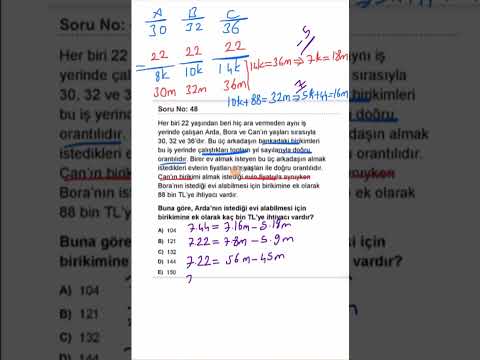 A B C
30 32 36
= 22 22 22
8k 10k 14k
30m 32m 36m
14k = 36m ⇒ 7k = 18m
10k + 88 = 32m ⇒ 5k + 44 = 16m
Soru No: 48
Soru No: 48
Her biri 22 yaşından beri hiç ara vermeden aynı iş
yerinde çalışan Arda, Bora ve Can'ın yaşları sırasıyla
30, 32 ve 36'dır. Bu üç arkadaşın bankadaki birikimleri
bu iş yerinde çalıştıkları toplam yıl sayılarıyla doğru
orantılıdır. Birer ev almak isteyen bu üç arkadaşın almak
istedikleri evlerin fiyatları ise yaşları ile doğru orantılıdır.
Can'ın birikimi almak istediği evin fiyatıyla aynıyken
Bora'nın istediği evi alabilmesi için birikimine ek olarak
88 bin TL'ye ihtiyacı vardır.
Buna göre, Arda'nın istediği evi alabilmesi için
birikimine ek olarak kaç bin TL'ye ihtiyacı vardır?
A) 104
B) 121
C) 132
D) 144
E) 150
7.44 = 7.16m - 5.18m
7.22 = 7.8m - 5.9m
7.22 = 56m - 45m
A) 104
B) 121
C) 132
D) 144
E) 150